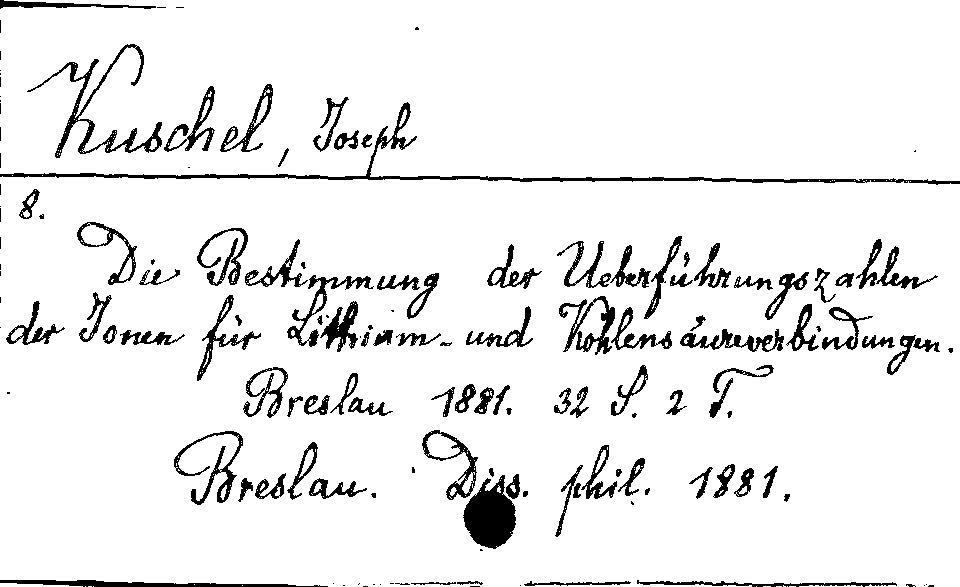 Kuschel, Joseph
8.
Die Bestimmung der Ueberführungszahlen
der Ionen für Lithium- und Kohlensäureverbindungen.
Breslau 1881. 32 S. 2 T.
Breslau. Diss. phil. 1881.